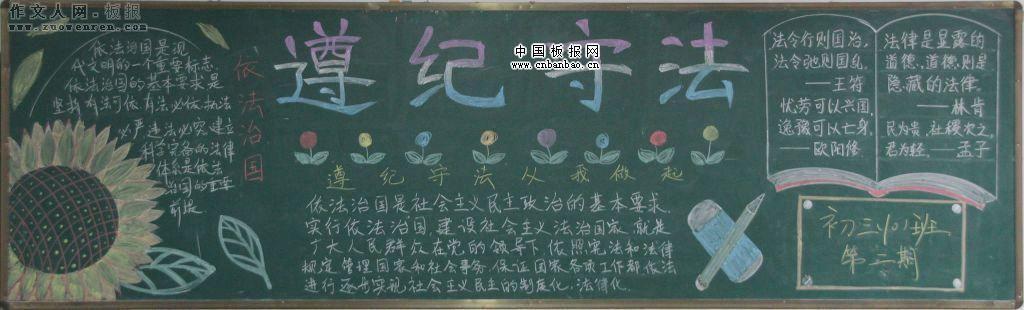 作文人网·板报
www.zuowenren.com
依法治国是现
代文明的一个重要标志,
依法治国的基本要求是
坚持有法可依,有法必依,执法
必严,违法必究,建立
科学完备的法律
体系是依法
治国的重要
前提
依法治国
遵纪守法
中国板报网
www.cnbanbao.cn
遵纪守法从我做起
依法治国是社会主义民主政治的基本要求,
实行依法治国,建设社会主义法治国家,就是
广大人民群众在党的领导下,依照宪法和法律
规定管理国家和社会事务,保证国家各项工作都依法
进行,逐步实现社会主义民主的制度化,法律化.
法令行则国治,
法令弛则国乱.
——王符
忧劳可以兴国,
逸豫可以亡身.
——欧阳修
法律是显露的
道德、道德则是
隐藏的法律.
——林肯
民为贵,社稷次之,
君为轻.——孟子
初三(10)班
第三期